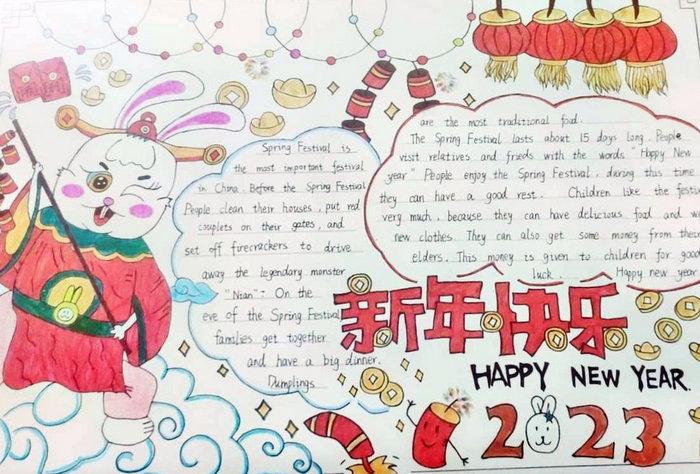 Spring Festival is
the most important festival
in China. Before the Spring Festival
People clean their houses, put red
couplets on their gates, and
set off firecrackers to drive
away the legendary monster
"Nian": On the
eve of the Spring Festival
families get together
and have a big dinner.
Dumplings
are the most traditional food.
The Spring Festival lasts about 15 days long. People
visit relatives and frieds with the words "Happy New
year" People enjoy the Spring Festival, daring this time
they can have a good rest. Children like the festi
very much, because they can have delicious food and
new clothes. They can also get some money from their
elders. This money is given to children for good
luck. Happy new year
新年快乐
HAPPY NEW YEAR.
2023